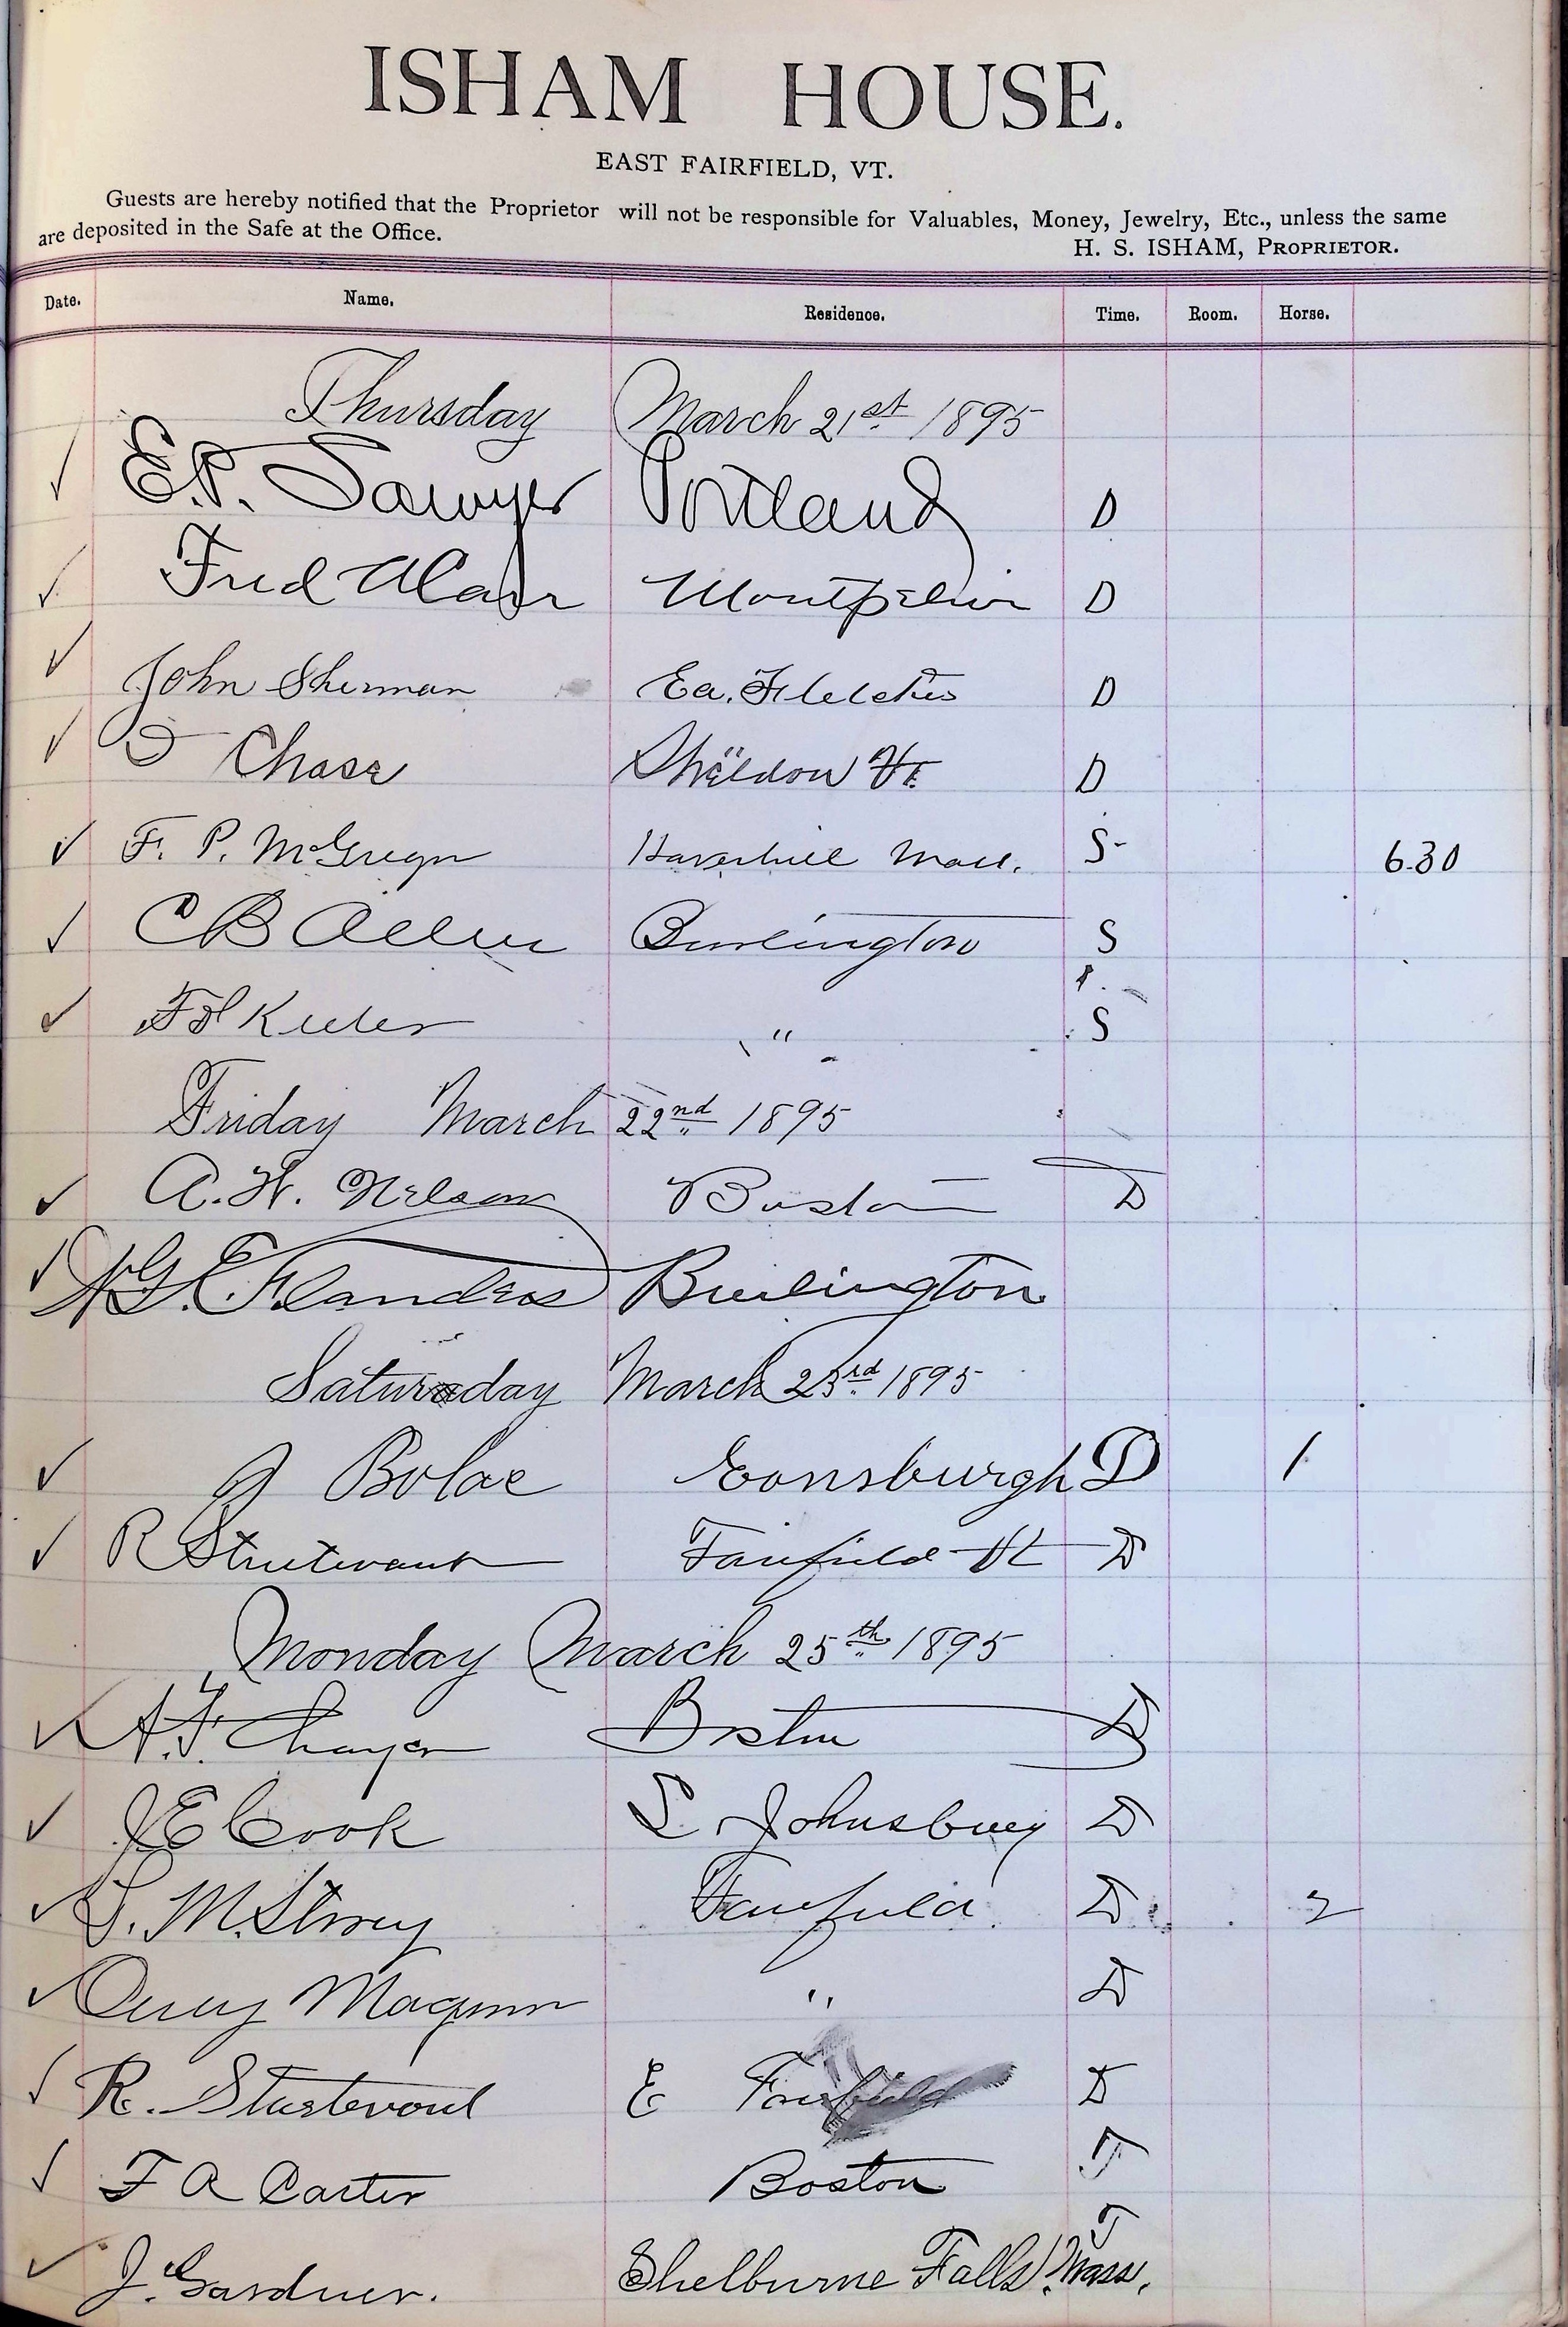 ISHAM HOUSE.
EAST FAIRFIELD, VT.
Guests are hereby notified that the Proprietor will not be responsible for Valuables, Money, Jewelry, Etc., unless the same
are deposited in the Safe at the Office.
H. S. ISHAM, PROPRIETOR.
Date. Name. Residence. Time. Room. Horse.
Thursday March 21st 1895
E.P. Sawyer Portland D
Fred Montpelier D
John Sherman Ea. Fletcher D
Chase Sheldon Vt. D
F. P. McGregor Haverhill Mass. S 6.30
C B Allen Burlington S
Keeler " S
Friday March 22nd 1895
A. H. Nelson Boston D
Flanders Burlington
Saturday March 23rd 1895
J Bolac Eonsburgh D 1
R Sturtevant Fairfield Vt D
Monday March 25th 1895
A.F. Thayer Boston D
J E Cook St Johnsbury D
S. M. Storey Fairfield D 2
Maginn " D
R. Sturtevant E Fairfield D
F A Carter Boston T
T
J. Gardner. Shelburne Falls, Mass.